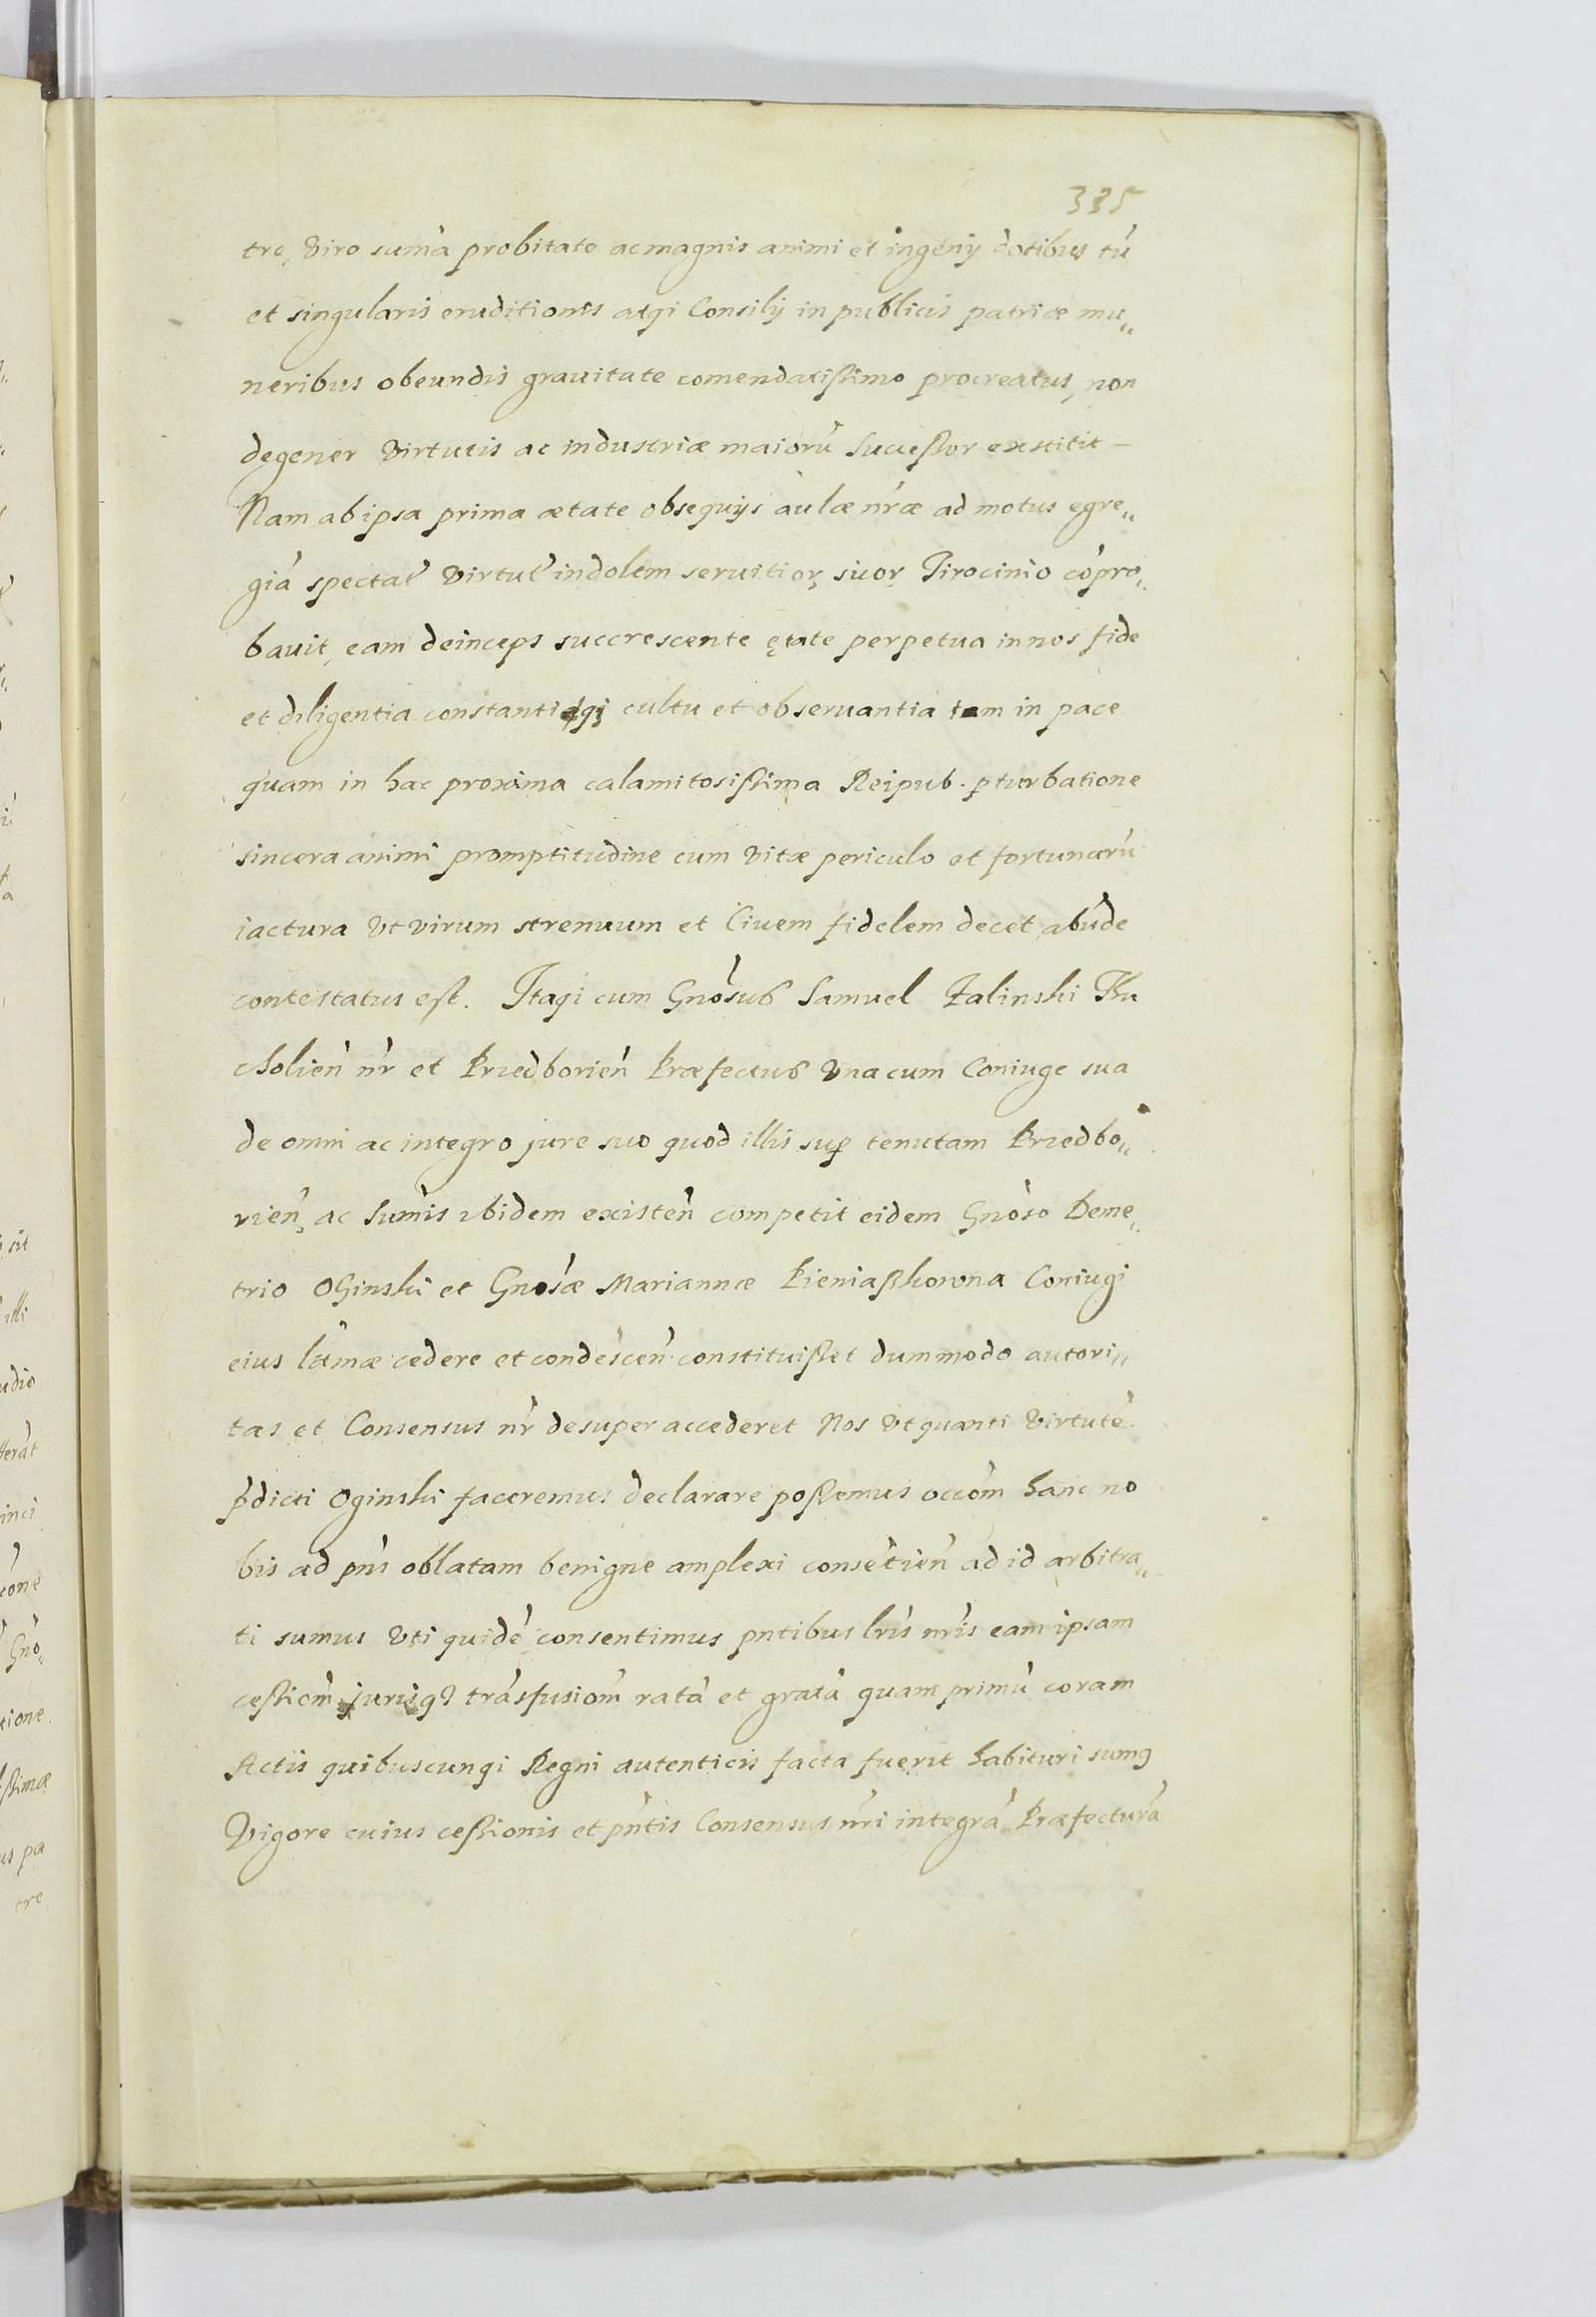 335
tre, Viro suma probitate ac magnis animi et ingenij dotibus tũ
et singularis eruditionis atqi Consilij in publicis patriæ mu„
neribus obeundis grauitate comendatißimo procreatus, non
degener Virtutis ac industriæ maiorũ Succeßor exstitit –
Nam ab ipsa prima ætate obsequijs aulæ nr̃æ ad motus egre„
giã spectat̃ Virtut̃ indolem seruitior suor Tirocinio cõpro„
bauit, eam deinceps succrescente ętate perpetua in nos fide
et diligentia constantiqi cultu et obseruantia tam in pace
quam in hac proxima calamitosißima Reipub. pturbatione
sincera animi promptitudine cum Vitæ periculo et fortunarũ
iactura Vt virum strenuum et Ciuem fidelem decet abũde
contestatus est. Itaqi cum Gnõsus Samuel Zalinski Tu
cholien̄ nr̃ et Przedborien̄ Præfectus Vna cum Coniuge sua
de omni ac integro jure suo quod illis sup tenutam Przedbo„
rien̄, ac Sum̃is ibidem existen̄ competit eidem Gnõso Deme„
trio Oginski et Gnosæ Mariannæ Pieniaßkowna Coniugi
eius ltmæ cedere et condescen̄ constituißet dummodo autori„
tas et Consensus nr̃ desuper accederet Nos Vt quanti Virtutẽ
p̃dicti Oginski faceremus declarare poßemus occom̃ hanc no
bis ad pn̄s oblatam benigne amplexi consẽtien̄ ad id arbitra„
ti sumus Vti quidẽ consentimus pntibus lrĩs nrĩs eam ipsam
ceßiom̃ jurisqȝ trãsfusiom̃ ratã et gratã quam primũ coram
Actis quibuscunqi Regni autenticis facta fuerit habituri sumꝯ
Vigore cuius ceßionis et pñtis Consensus nr̃i integrã Præfecturã